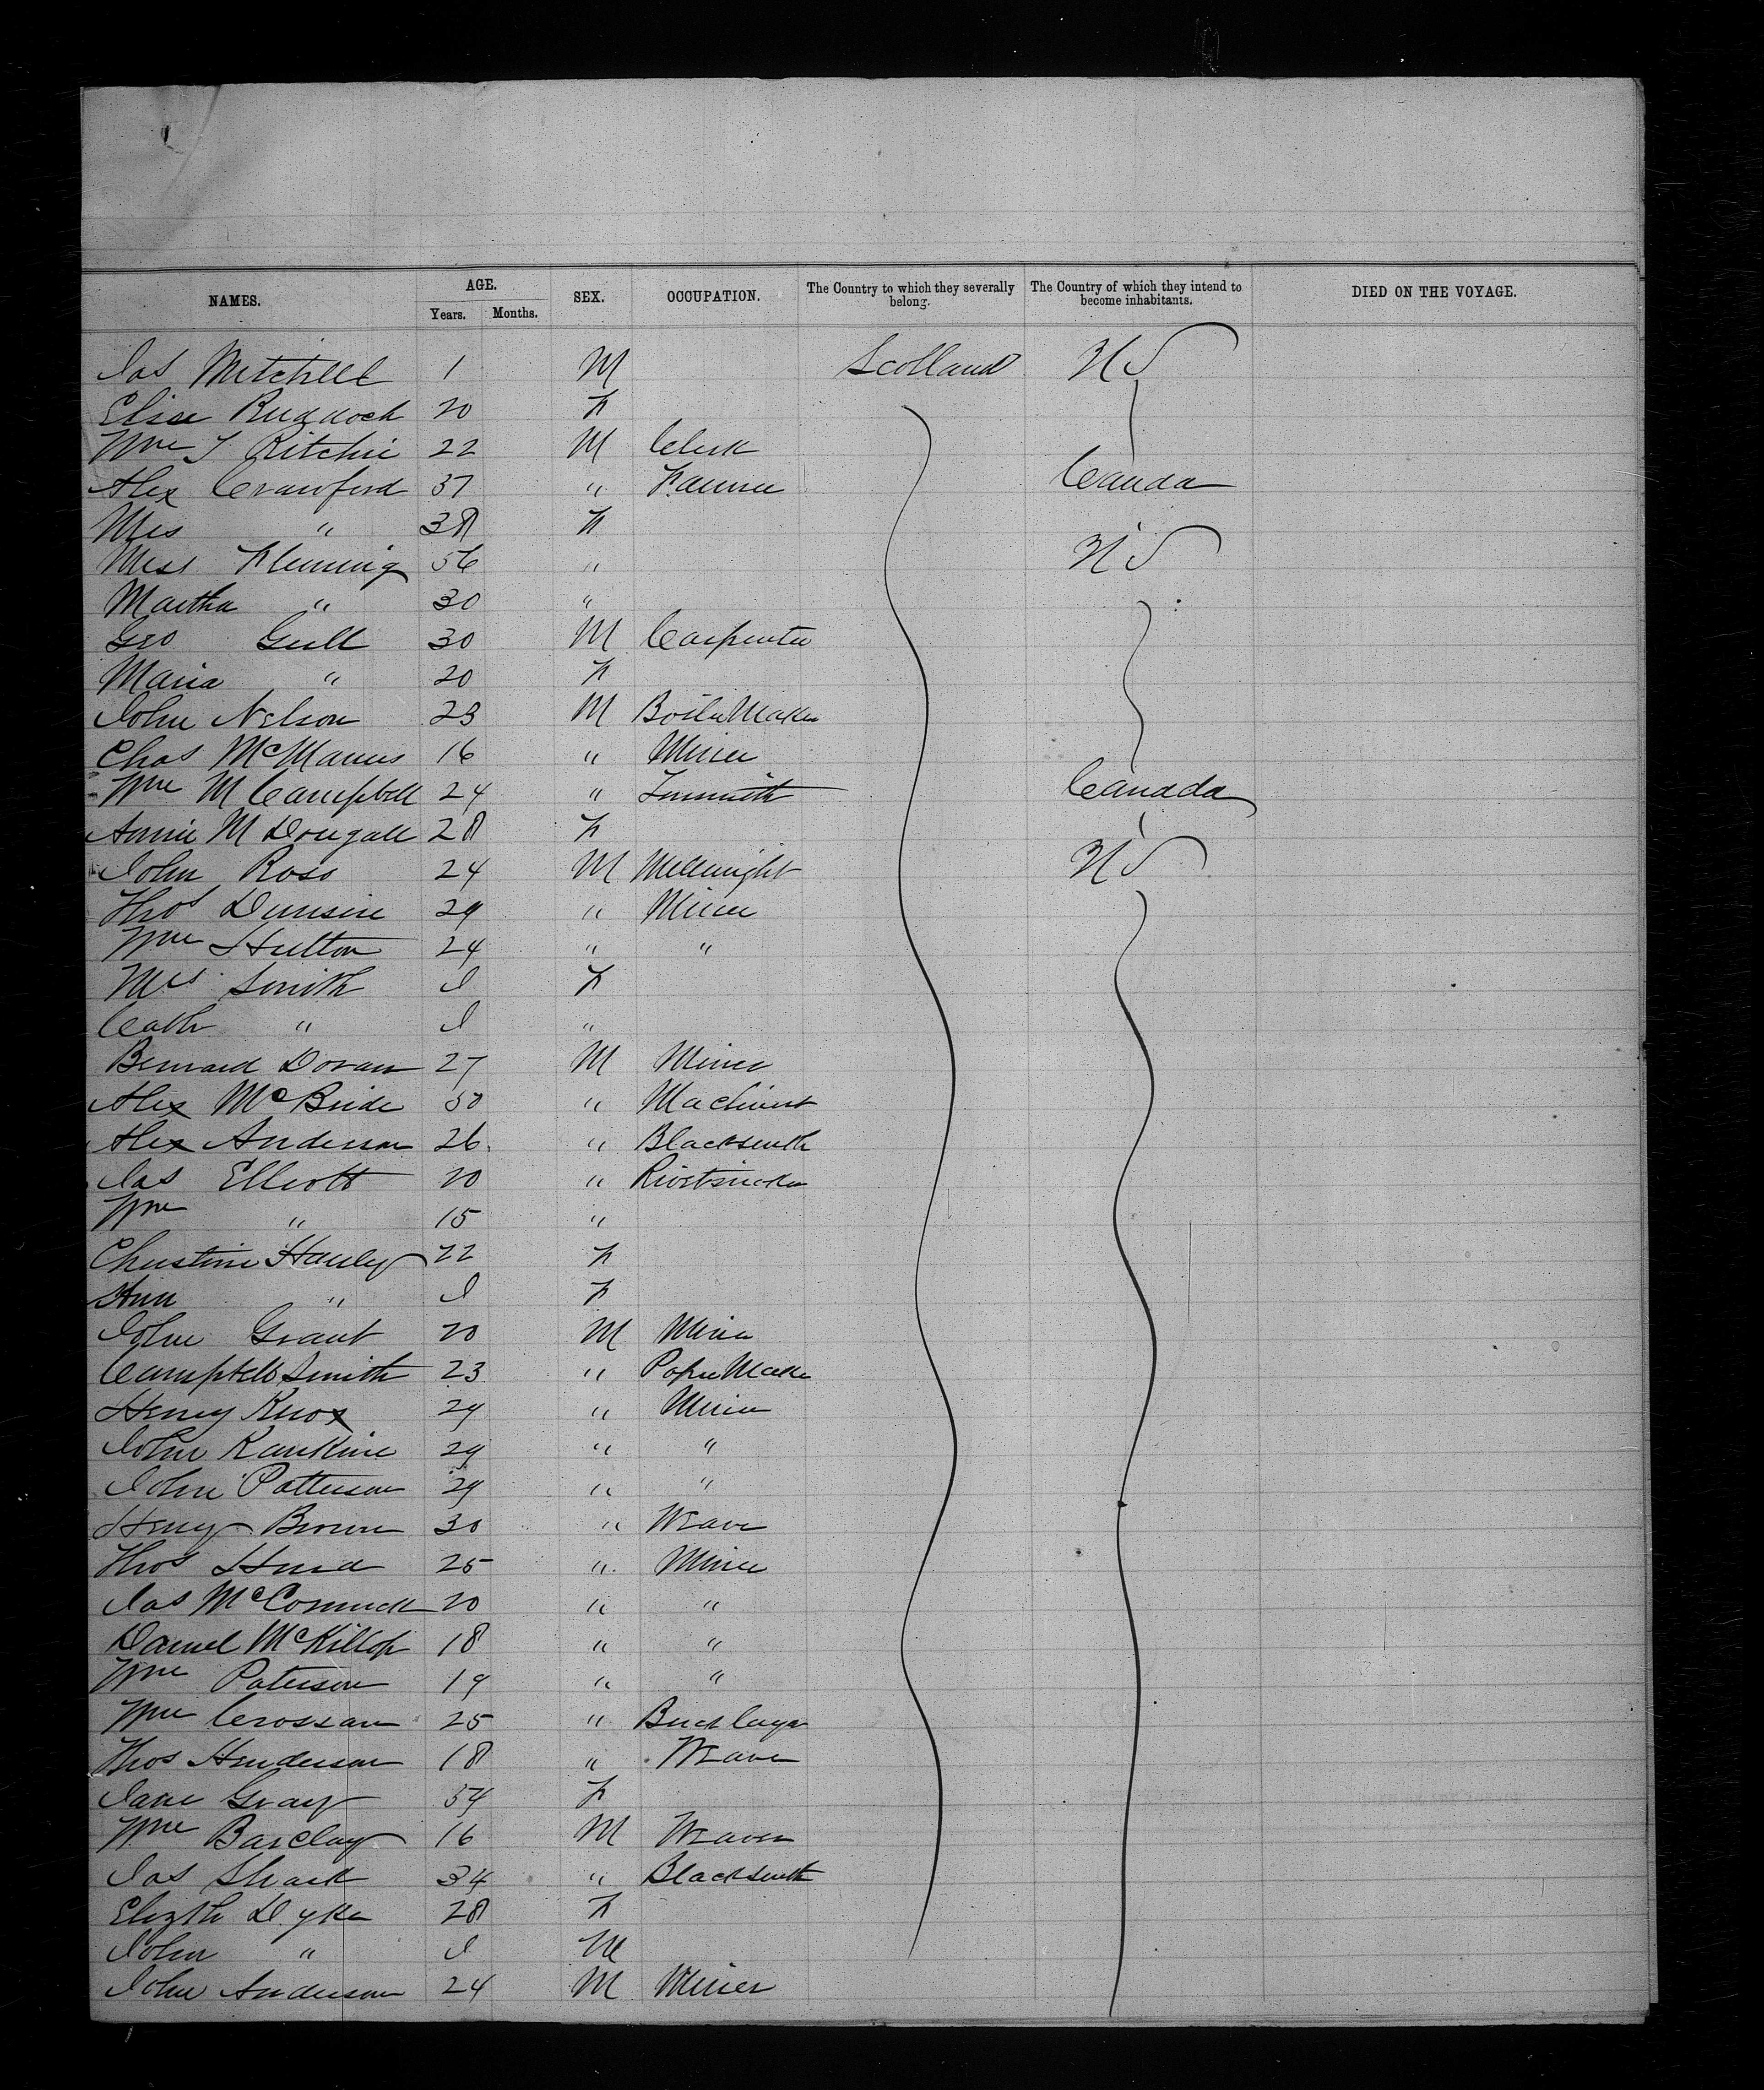 NAMES. AGE. SEX. OCCUPATION. The Country to which they severally belong. The Country of which they intend to become inhabitants. DIED ON THE VOYAGE.
Years. Months.
Jas Mitchell 1 M Scotland U S
Elise Ruddock 20 F
Wm J Ritchie 22 M Clerk
Alex Crawford 37 " Farmer Canada
Mrs " 38 F
Miss Fleming 56 " U S
Martha " 30 "
Geo Gull 30 M Carpenter
Maria " 20 F
John Nelson 23 M Boiler Maker
Chas McManus 16 " Miner
Wm M Campbell 24 " Tinsmith Canada
Annie M Dougall 28 F
John Ross 24 M Millwright U S
Thos Dunsire 29 " Miner
Wm Hutton 24 " "
Mrs Smith I F
Cath " I "
Bernard Doran 27 M Miner
Alex McBride 50 " Machinist
Alex Anderson 26 " Blacksmith
Jas Elliott 20 "
Wm " 15 "
Christina Hanley 22 F
Ann " I F
John Grant 20 M Miner
Campbell Smith 23 " Paper Maker
Henry Knox 29 " Miner
John Rankine 29 " "
John Patterson 29 " "
Henry Brown 30 " Weaver
Thos Hurd 25 " Miner
Jas McCormick 20 " "
Daniel McKillop 18 " "
Wm Paterson 19 " "
Wm Crossan 25 " Bricklayer
Thos Henderson 18 " Weaver
Jane Gray 54 F
Wm Barclay 16 M Weaver
Jas 34 " Blacksmith
Elizth Dyke 28 F
John " I M
John Anderson 24 M Miner